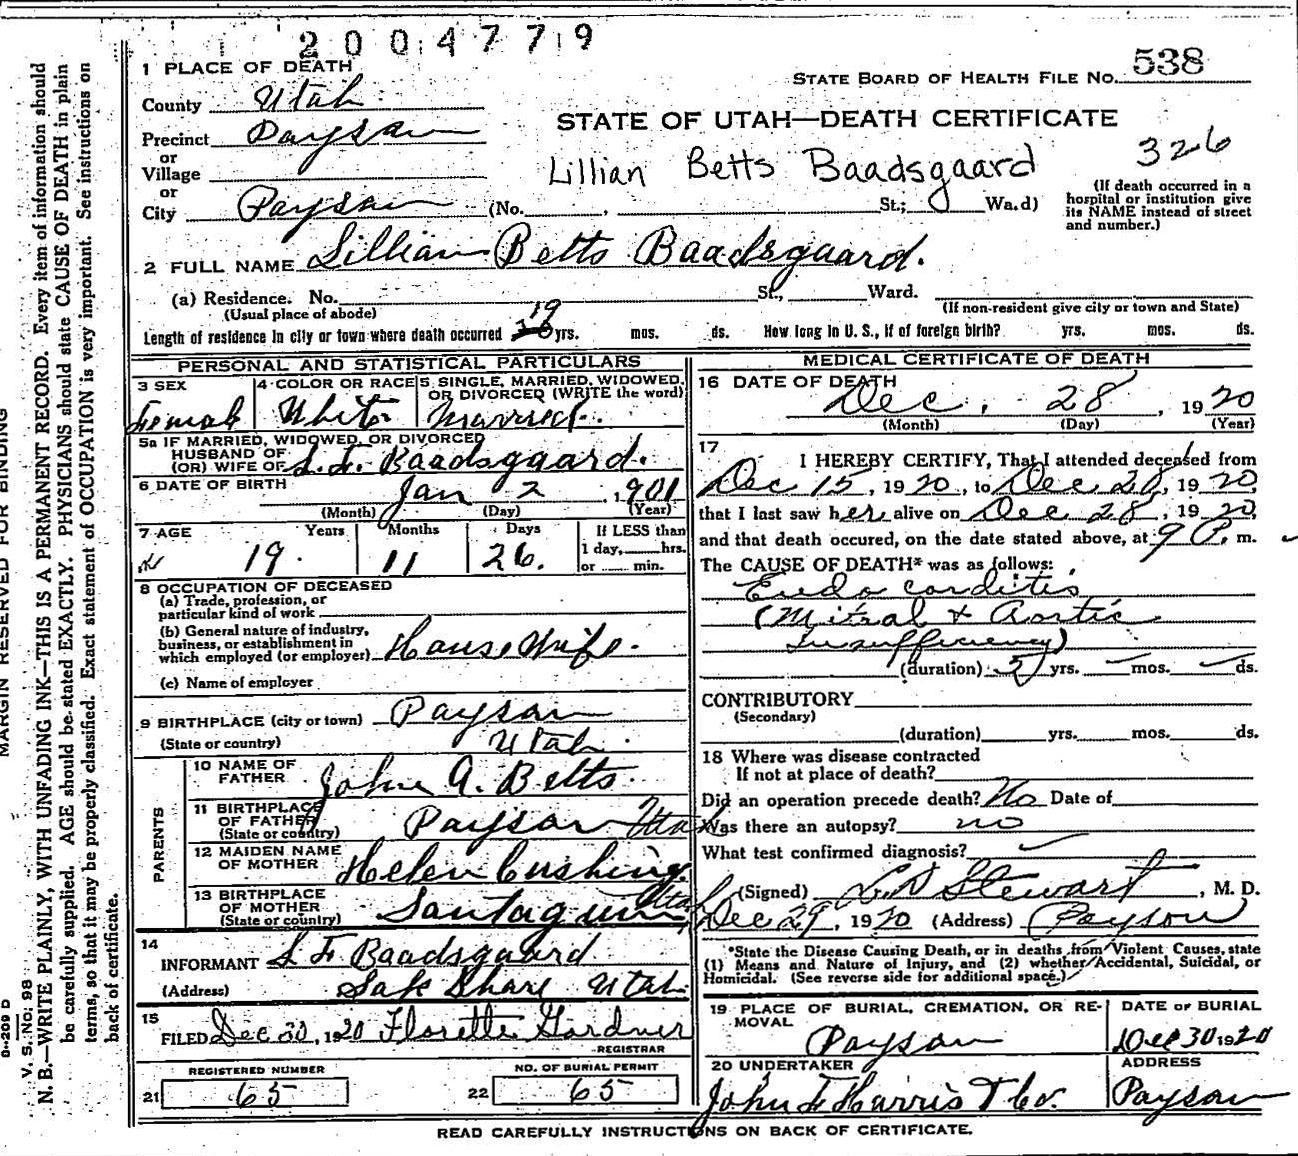 2004779
1 PLACE OF DEATH
STATE BOARD OF HEALTH FILE NO. 538
County Utah
STATE OF UTAH—DEATH CERTIFICATE
Precinct Payson
326
or
Village
Lillian Betts Baadsgaard
or
City Payson (No. , St.; Wa.d)
(If death occurred in a
hospital or institution give
its NAME instead of street
and number.)
2 FULL NAME Lillian Betts Baadsgaard.
(a) Residence. No. St., Ward.
(Usual place of abode) (If non-resident give city or town and State)
Length of residence in city or town where death occurred 19 yrs. mos. ds. How long in U. S., if of foreign birth? yrs. mos. ds.
PERSONAL AND STATISTICAL PARTICULARS
3 SEX Female
4 COLOR OR RACE White
5 SINGLE, MARRIED, WIDOWED,
OR DIVORCED (WRITE the word)
Married.
5a IF MARRIED, WIDOWED, OR DIVORCED
HUSBAND OF
(OR) WIFE OF L. F. Baadsgaard.
6 DATE OF BIRTH Jan 2, 1901
(Month) (Day) (Year)
7 AGE Years Months Days If LESS than
19. 11 26. 1 day, hrs.
or min.
8 OCCUPATION OF DECEASED
(a) Trade, profession, or
particular kind of work
(b) General nature of industry,
business, or establishment in
which employed (or employer) House Wife.
(c) Name of employer
9 BIRTHPLACE (city or town) Payson
(State or country) Utah.
PARENTS
10 NAME OF
FATHER John A. Betts.
11 BIRTHPLACE
OF FATHER
(State or country) Payson Utah
12 MAIDEN NAME
OF MOTHER Helen Cushing
13 BIRTHPLACE
OF MOTHER
(State or country) Santaquin Utah
14
INFORMANT L F Baadsgaard
(Address) Utah
15
FILED Dec 30, 1920 Florette Gardner
REGISTRAR
REGISTERED NUMBER
21 65
NO. OF BURIAL PERMIT
22 65
MEDICAL CERTIFICATE OF DEATH
16 DATE OF DEATH
Dec. 28, 1920
(Month) (Day) (Year)
17
I HEREBY CERTIFY, That I attended deceased from
Dec 15, 1920, to Dec 28, 1920,
that I last saw her alive on Dec 28, 1920,
and that death occured, on the date stated above, at 9 P. m.
The CAUSE OF DEATH* was as follows:
Endocarditis
(Mitral + Aortic
Insufficiency)
(duration) 5 yrs. mos. ds.
CONTRIBUTORY
(Secondary)
(duration) yrs. mos. ds.
18 Where was disease contracted
If not at place of death?
Did an operation precede death? No Date of
Was there an autopsy? no
What test confirmed diagnosis?
(Signed) Stewart, M. D.
Dec 29, 1920 (Address) Payson
*State the Disease Causing Death, or in deaths from Violent Causes, state
(1) Means and Nature of Injury, and (2) whether Accidental, Suicidal, or
Homicidal. (See reverse side for additional space.)
19 PLACE OF BURIAL, CREMATION, OR RE-
MOVAL
Payson
DATE OF BURIAL
Dec 30 1920
20 UNDERTAKER
John F Harris & Co.
ADDRESS
Payson
READ CAREFULLY INSTRUCTIONS ON BACK OF CERTIFICATE.
MARGIN RESERVED FOR BINDING
V. S. NO. 98
N. B.—WRITE PLAINLY, WITH UNFADING INK—THIS IS A PERMANENT RECORD. Every item of information should
be carefully supplied. AGE should be stated EXACTLY. PHYSICIANS should state CAUSE OF DEATH in plain
terms, so that it may be properly classified. Exact statement of OCCUPATION is very important. See instructions on
back of certificate.